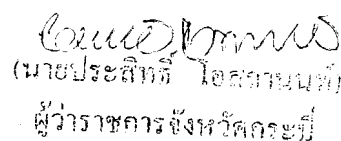 (นายประสิทธิ์ โอสถานนท์)
ผู้ว่าราชการจังหวัดกระบี่